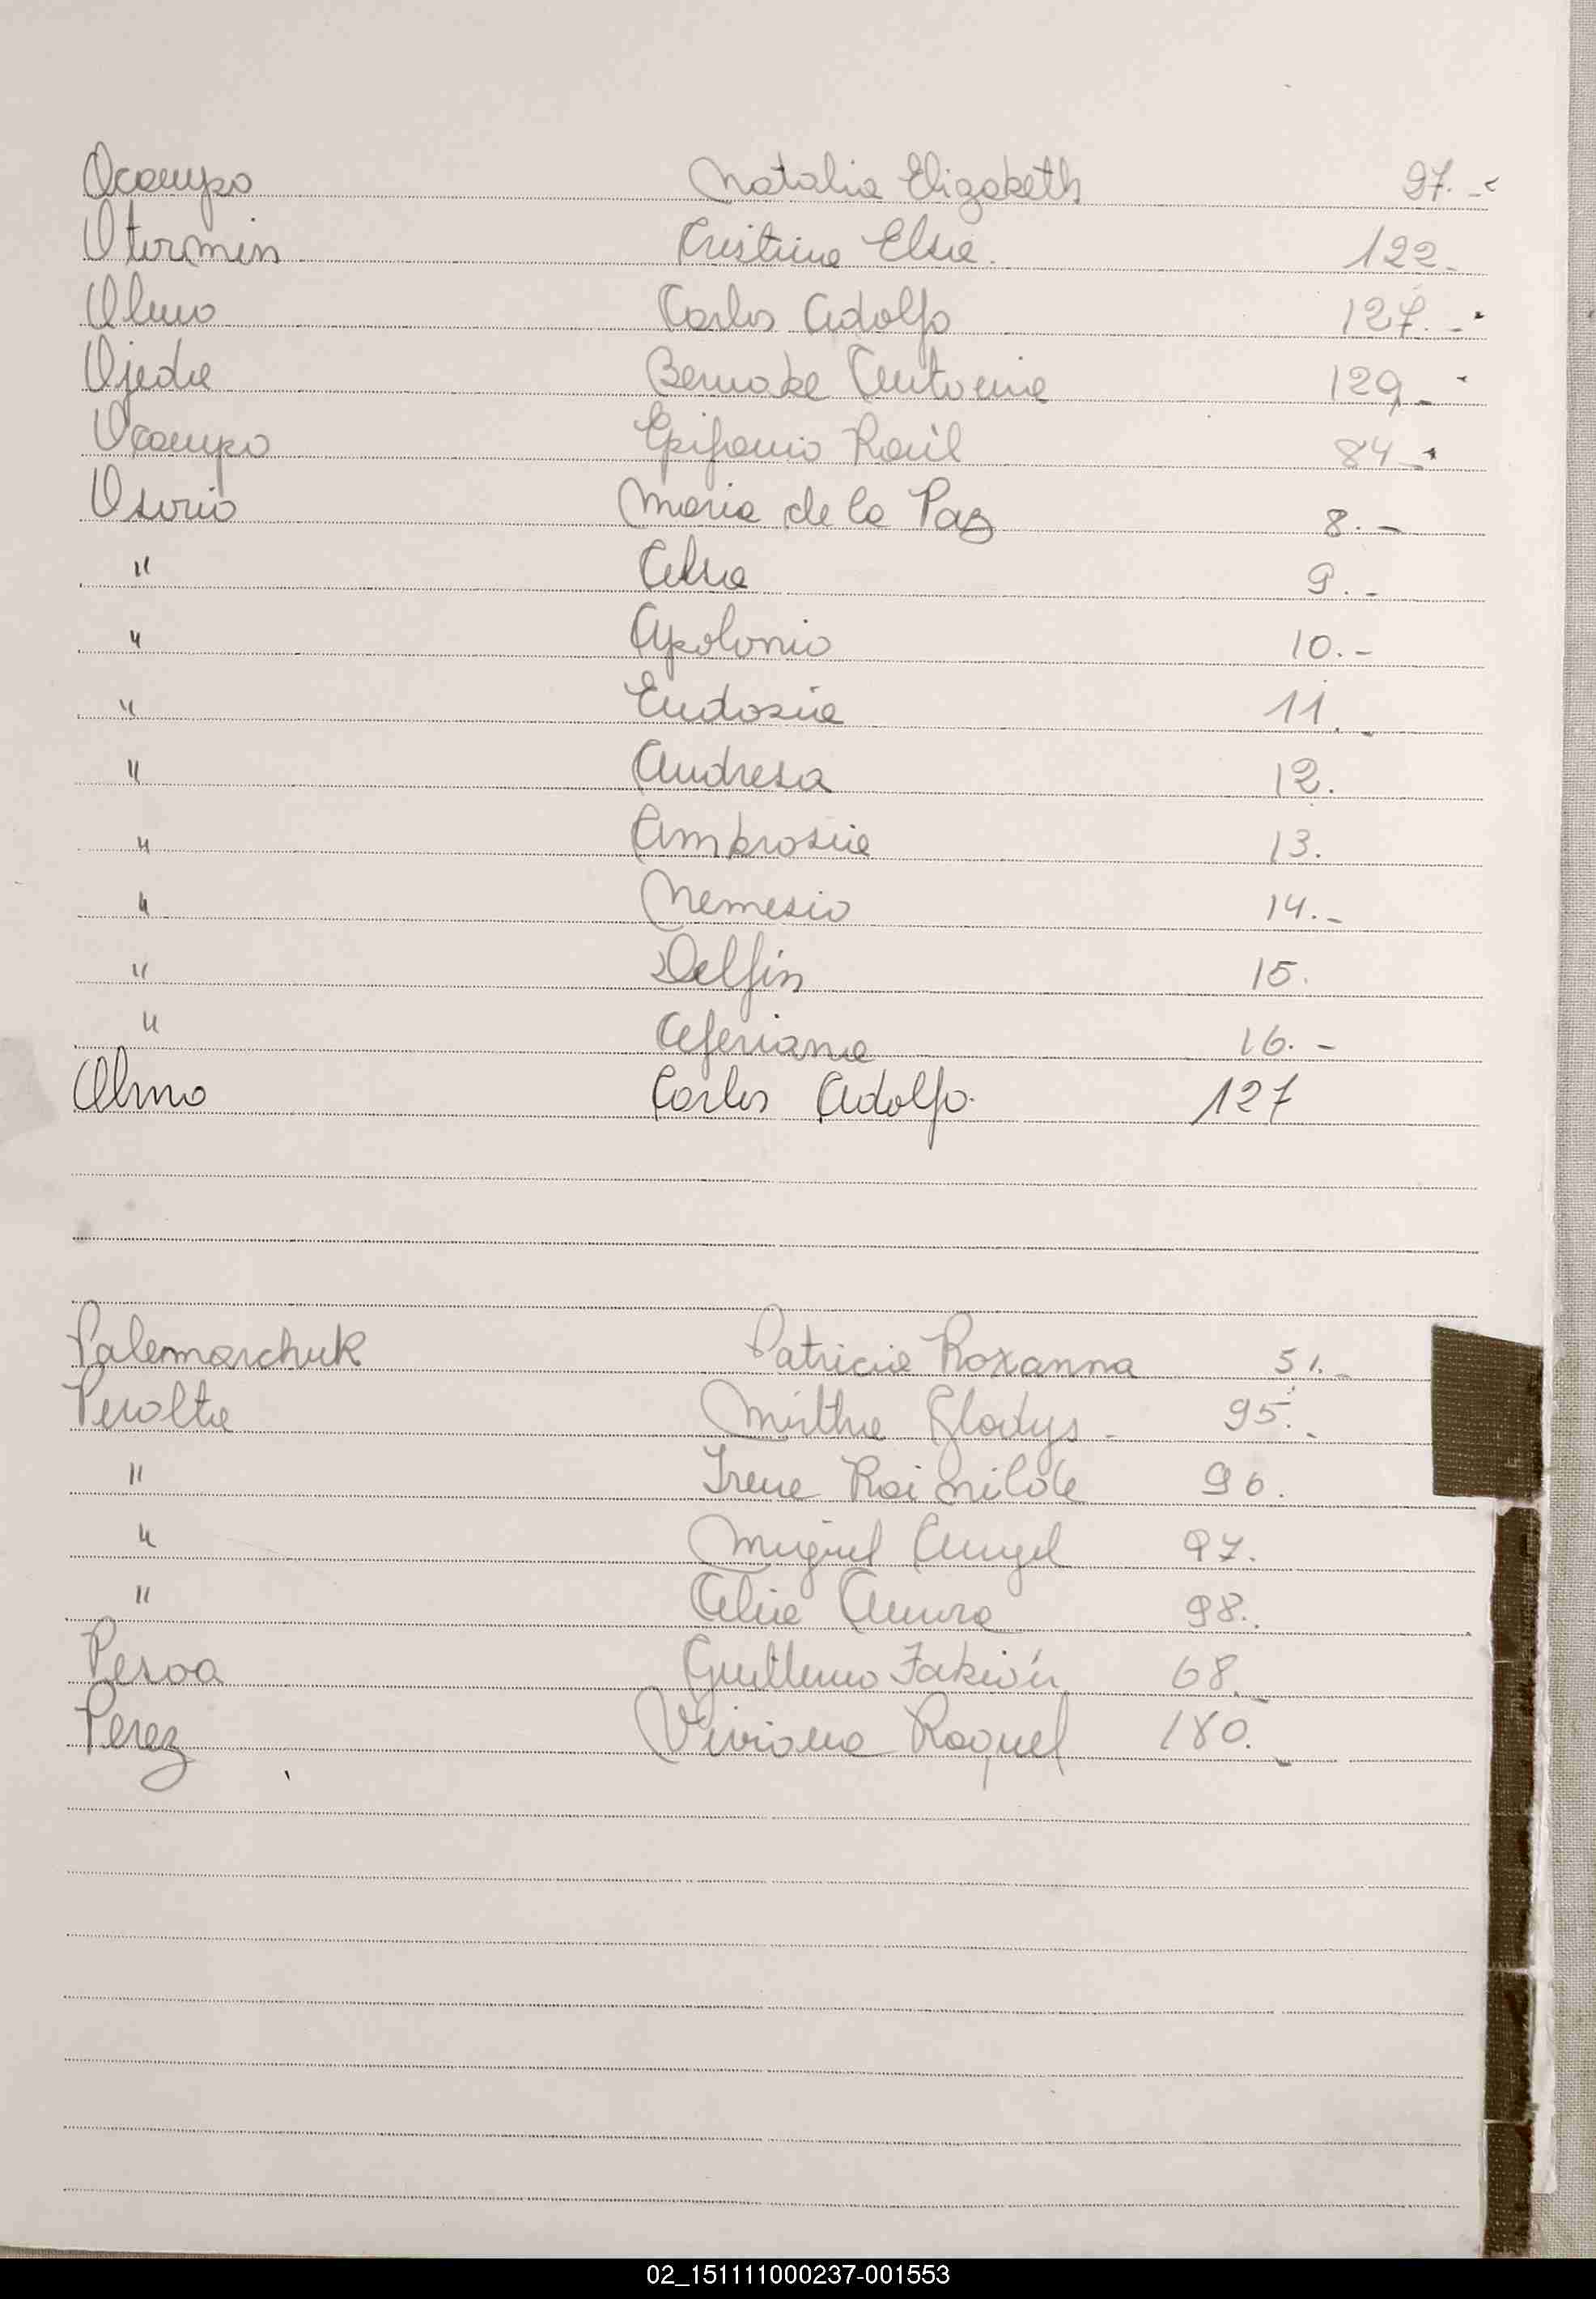 Ocampo Natalia Elizabeth 97.-
Otermin Cristina Elsa. 122.-
Olmo Carlos Adolfo 127.-
Ojeda Antonia 129.-
Ocampo Epifanio Raúl 84.-
Osorio Maria de la Paz 8.-
" 9.-
" Apolonio 10.-
" Eudosia 11.-
" Andresa 12.
" Ambrosia 13.
" Nemesio 14.-
" Delfin 15.
" 16.-
Olmo Carlos Adolfo. 127
Palemarchuk Patricia Roxanna 51.-
Peralta Mirtha Gladys - 95.-
" Irene 96.
" Miguel Angel 97.
" 98.
Pesoa Guillermo Fabián 68.-
Perez Viviana Raquel 180.-
02_151111000237-001553